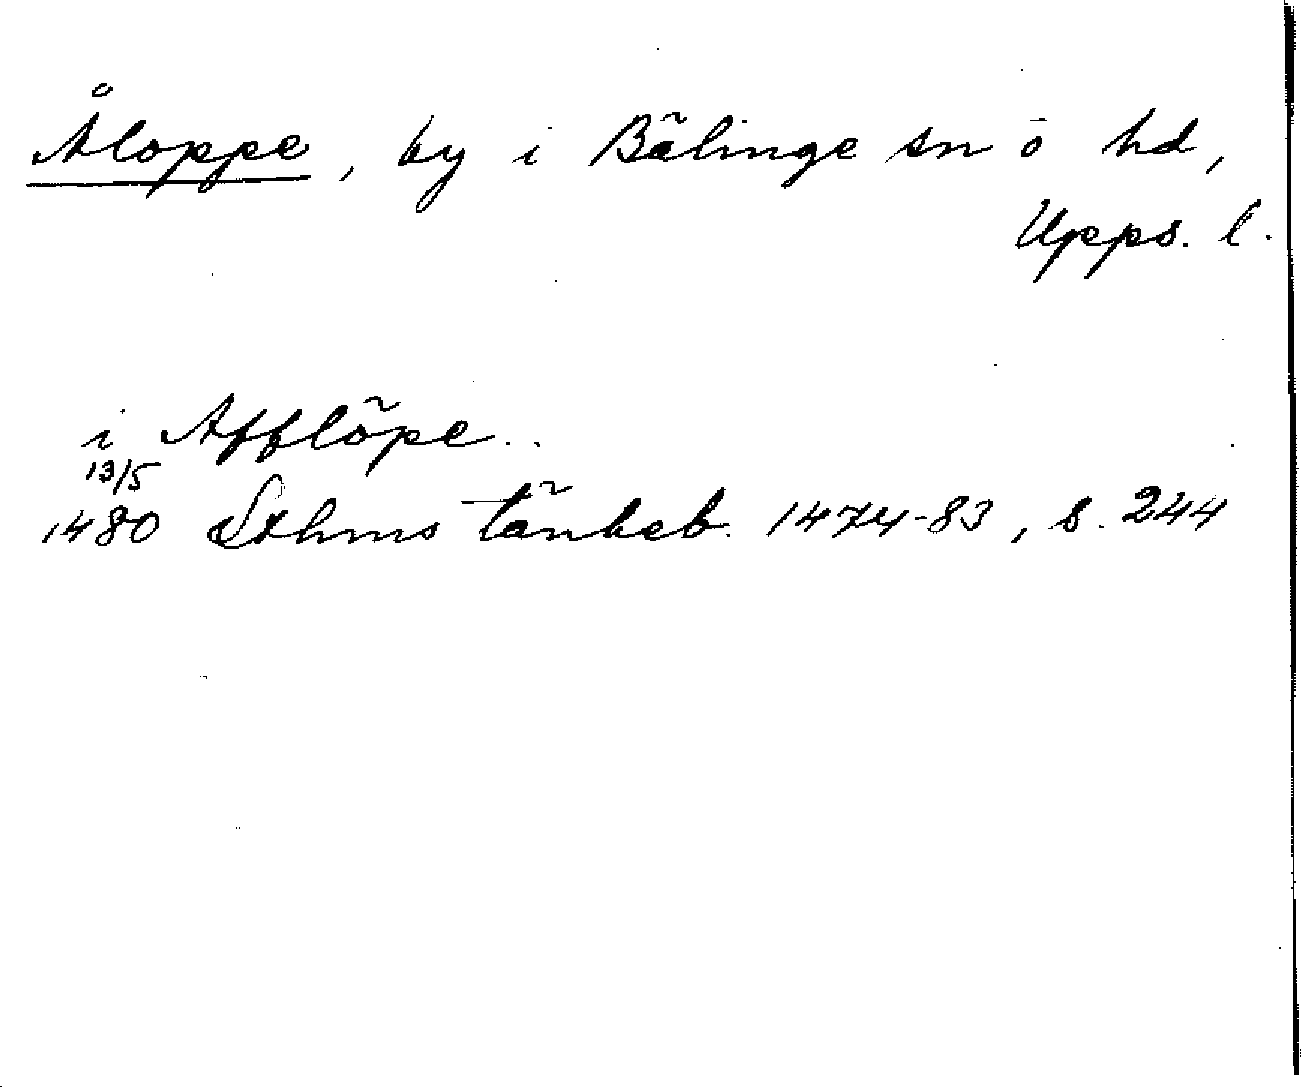 Åloppe, by i Bälinge sn o hd,
Upps. l.
i Afflöpe..
13/5
1480 Sthms tänkeb. 1474-83, s. 244